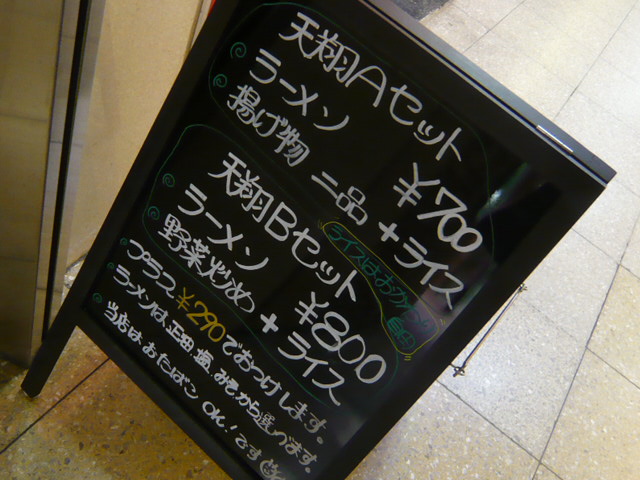 天翔Aセット
¥700
ラーメン
揚げ物 二品 + ライス
ライスはおかわり自由
天翔Bセット
¥800
ラーメン
野菜炒め + ライス
プラス¥290でおつけします。
ラーメンは、正田、塩、みそから選べます。
当店は、おたばこOK!です